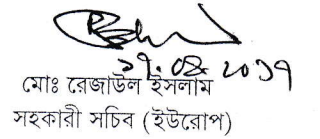 ২৭.০৪.২০১৭
মোঃ রেজাউল ইসলাম
সহকারী সচিব (ইউরোপ)